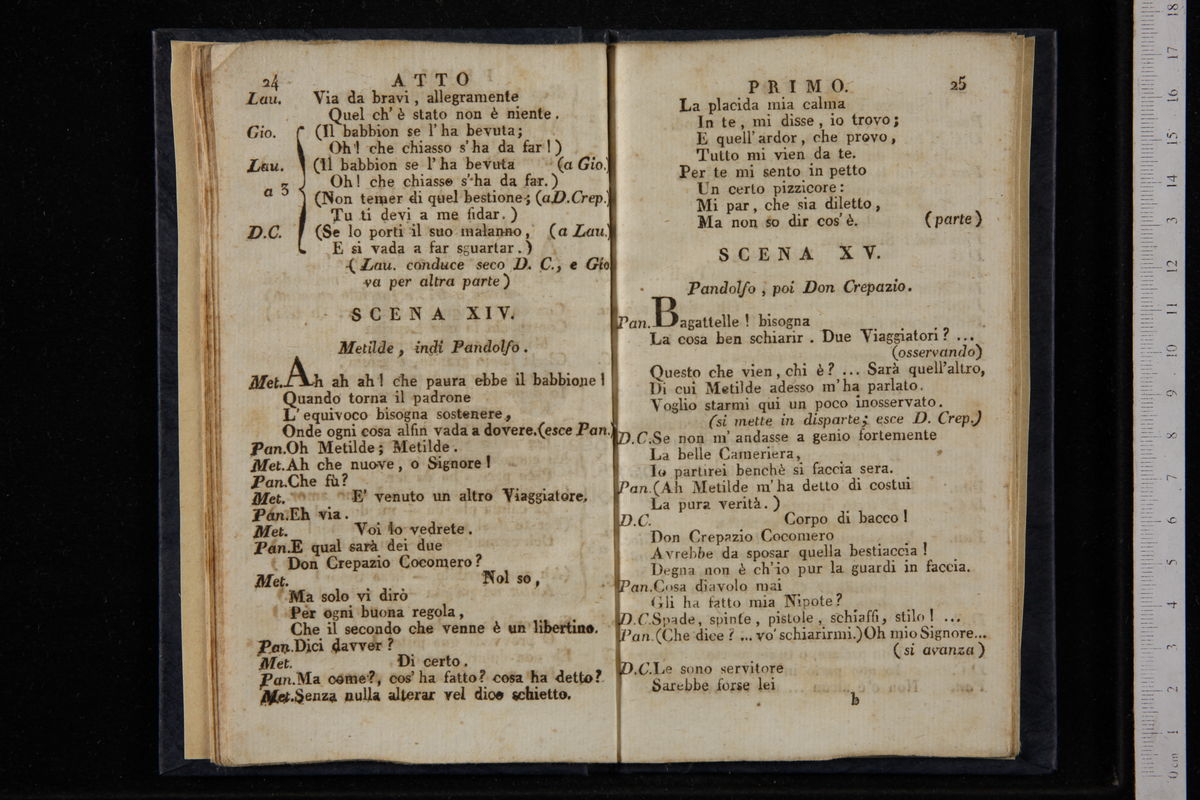 24 ATTO
Lau. Via da bravi, allegramente
Quel ch' è stato non è niente.
Gio. (Il babbion se l' ha bevuta;
Oh! che chiasso s' ha da far!)
Lau. (Il babbion se l' ha bevuta (a Gio.)
Oh! che chiasso s' ha da far.)
a 3 (Non temer di quel bestione; (a D. Crep.)
Tu ti devi a me fidar.)
D.C. (Se lo porti il suo malanno, (a Lau.)
E si vada a far sguartar.)
(Lau. conduce seco D. C., e Gio
va per altra parte)
SCENA XIV.
Metilde, indi Pandolfo.
Met. Ah ah ah! che paura ebbe il babbione!
Quando torna il padrone
L' equivoco bisogna sostenere,
Onde ogni cosa alfin vada a dovere. (esce Pan.)
Pan. Oh Metilde; Metilde.
Met. Ah che nuove, o Signore!
Pan. Che fù?
Met. E' venuto un altro Viaggiatore.
Pan. Eh via.
Met. Voi lo vedrete.
Pan. E qual sarà dei due
Don Crepazio Cocomero?
Met. Nol so,
Ma solo vi dirò
Per ogni buona regola,
Che il secondo che venne è un libertino.
Pan. Dici davver?
Met. Di certo.
Pan. Ma come?, cos' ha fatto? cosa ha detto?
Met. Senza nulla alterar vel dico schietto.
PRIMO. 25
La placida mia calma
In te, mi disse, io trovo;
E quell' ardor, che provo,
Tutto mi vien da te.
Per te mi sento in petto
Un certo pizzicore:
Mi par, che sia diletto,
Ma non so dir cos' è. (parte)
SCENA XV.
Pandolfo, poi Don Crepazio.
Pan. Bagattelle! bisogna
La cosa ben schiarir. Due Viaggiatori? ...
(osservando)
Questo che vien, chi è? ... Sarà quell'altro,
Di cui Metilde adesso m' ha parlato.
Voglio starmi qui un poco inosservato.
(si mette in disparte; esce D. Crep.)
D.C. Se non m' andasse a genio fortemente
La belle Cameriera,
Io partirei benchè si faccia sera.
Pan. (Ah Metilde m' ha detto di costui
La pura verità.)
D.C. Corpo di bacco!
Don Crepazio Cocomero
Avrebbe da sposar quella bestiaccia!
Degna non è ch'io pur la guardi in faccia.
Pan. Cosa diavolo mai
Gli ha fatto mia Nipote?
D.C. Spade, spinte, pistole, schiaffi, stilo! ...
Pan. (Che dice? ... vo' schiarirmi.) Oh mio Signore...
(si avanza)
D.C. Le sono servitore
Sarebbe forse lei
b
0 cm 1 2 3 4 5 6 7 8 9 10 11 12 13 14 15 16 17 18